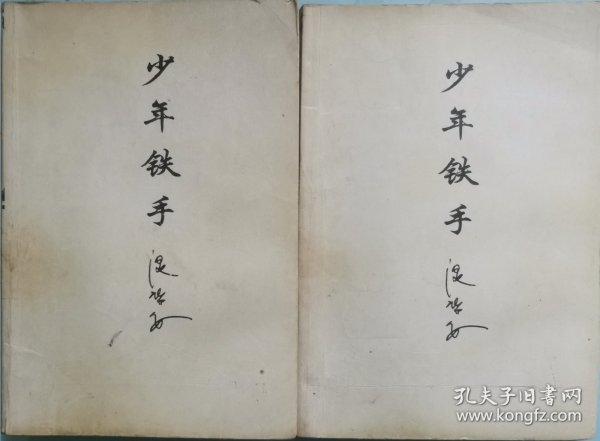 少年铁手 温瑞安
少年铁手 温瑞安
孔夫子旧书网
www.kongfz.com